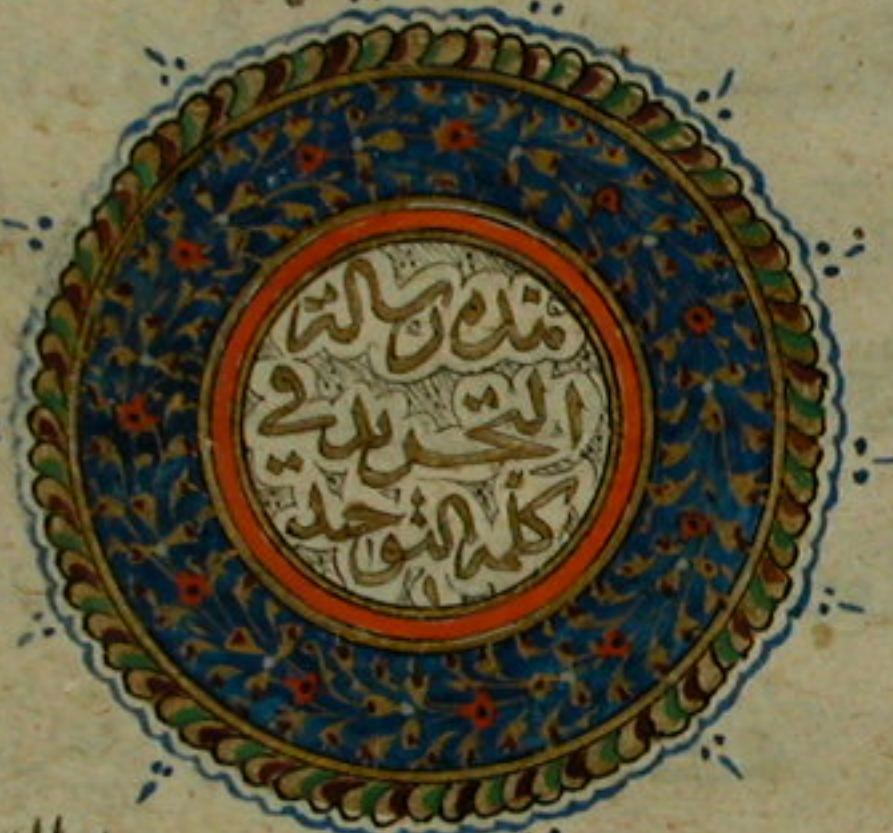 هذه رسالة
التجريد في
كلمة التوحيد